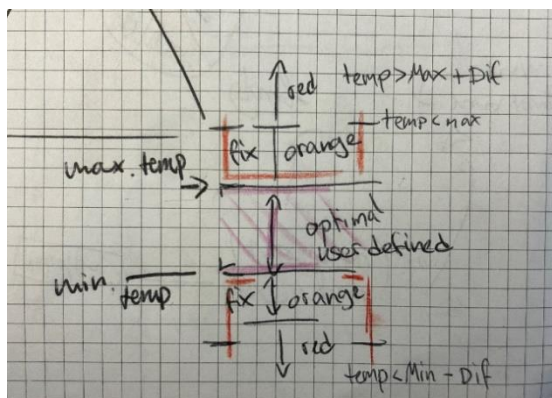 red
temp>Max + Dif
temp<max
fix
orange
max. temp
optimal
user defined
min.
temp
fix
orange
red
temp<Min - Dif